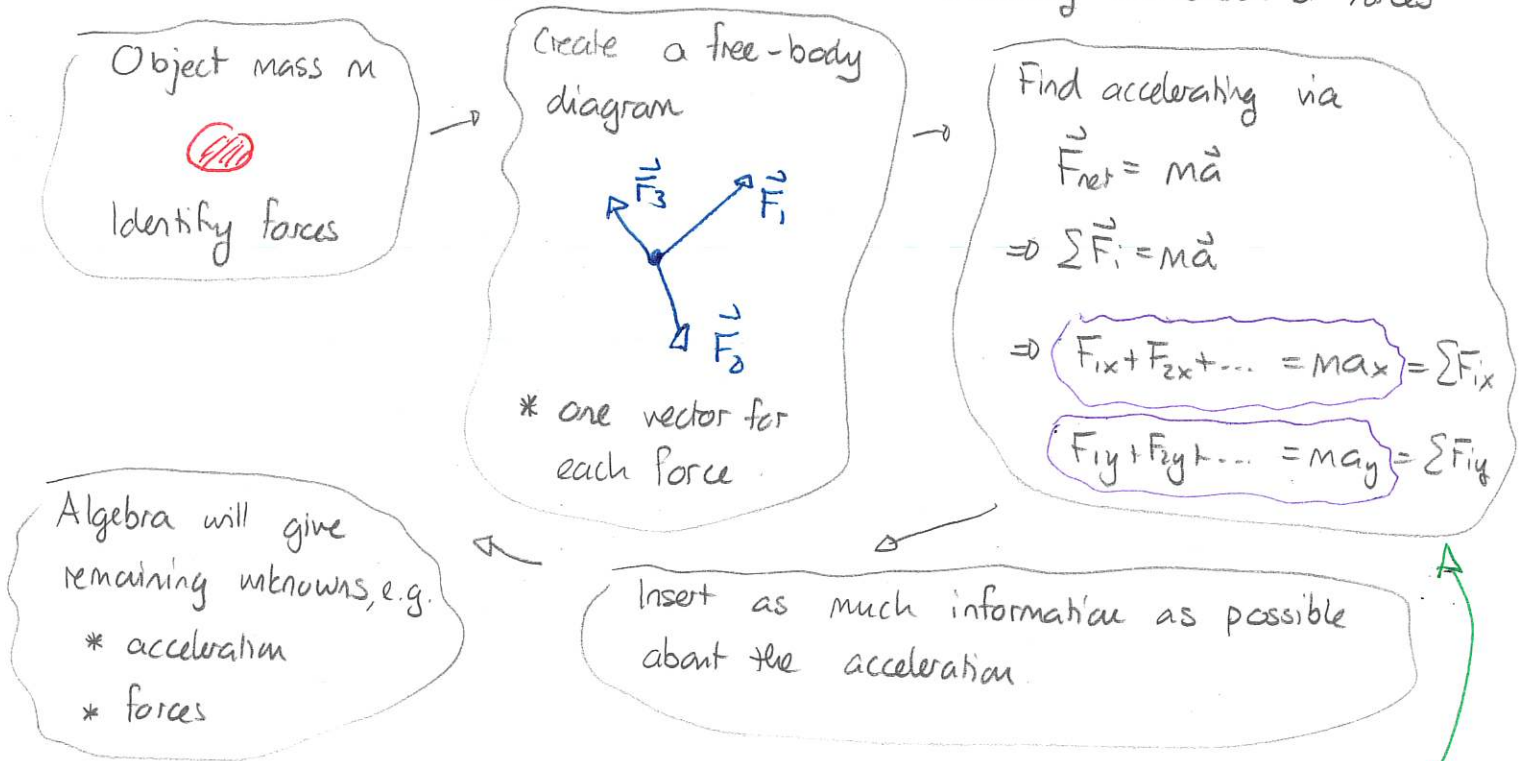 forces
Object mass m
Identify forces
Create a free-body
diagram
F⃗₃
F⃗₁
F⃗₂
* one vector for
each force
Find accelerating via
F⃗net = ma⃗
⇒ ΣF⃗ᵢ = ma⃗
⇒ F₁ₓ + F₂ₓ + .... = maₓ = ΣFᵢₓ
F₁y + F₂y + .... = may = ΣFᵢy
Insert as much information as possible
about the acceleration
Algebra will give
remaining unknowns, e.g.
* acceleration
* forces